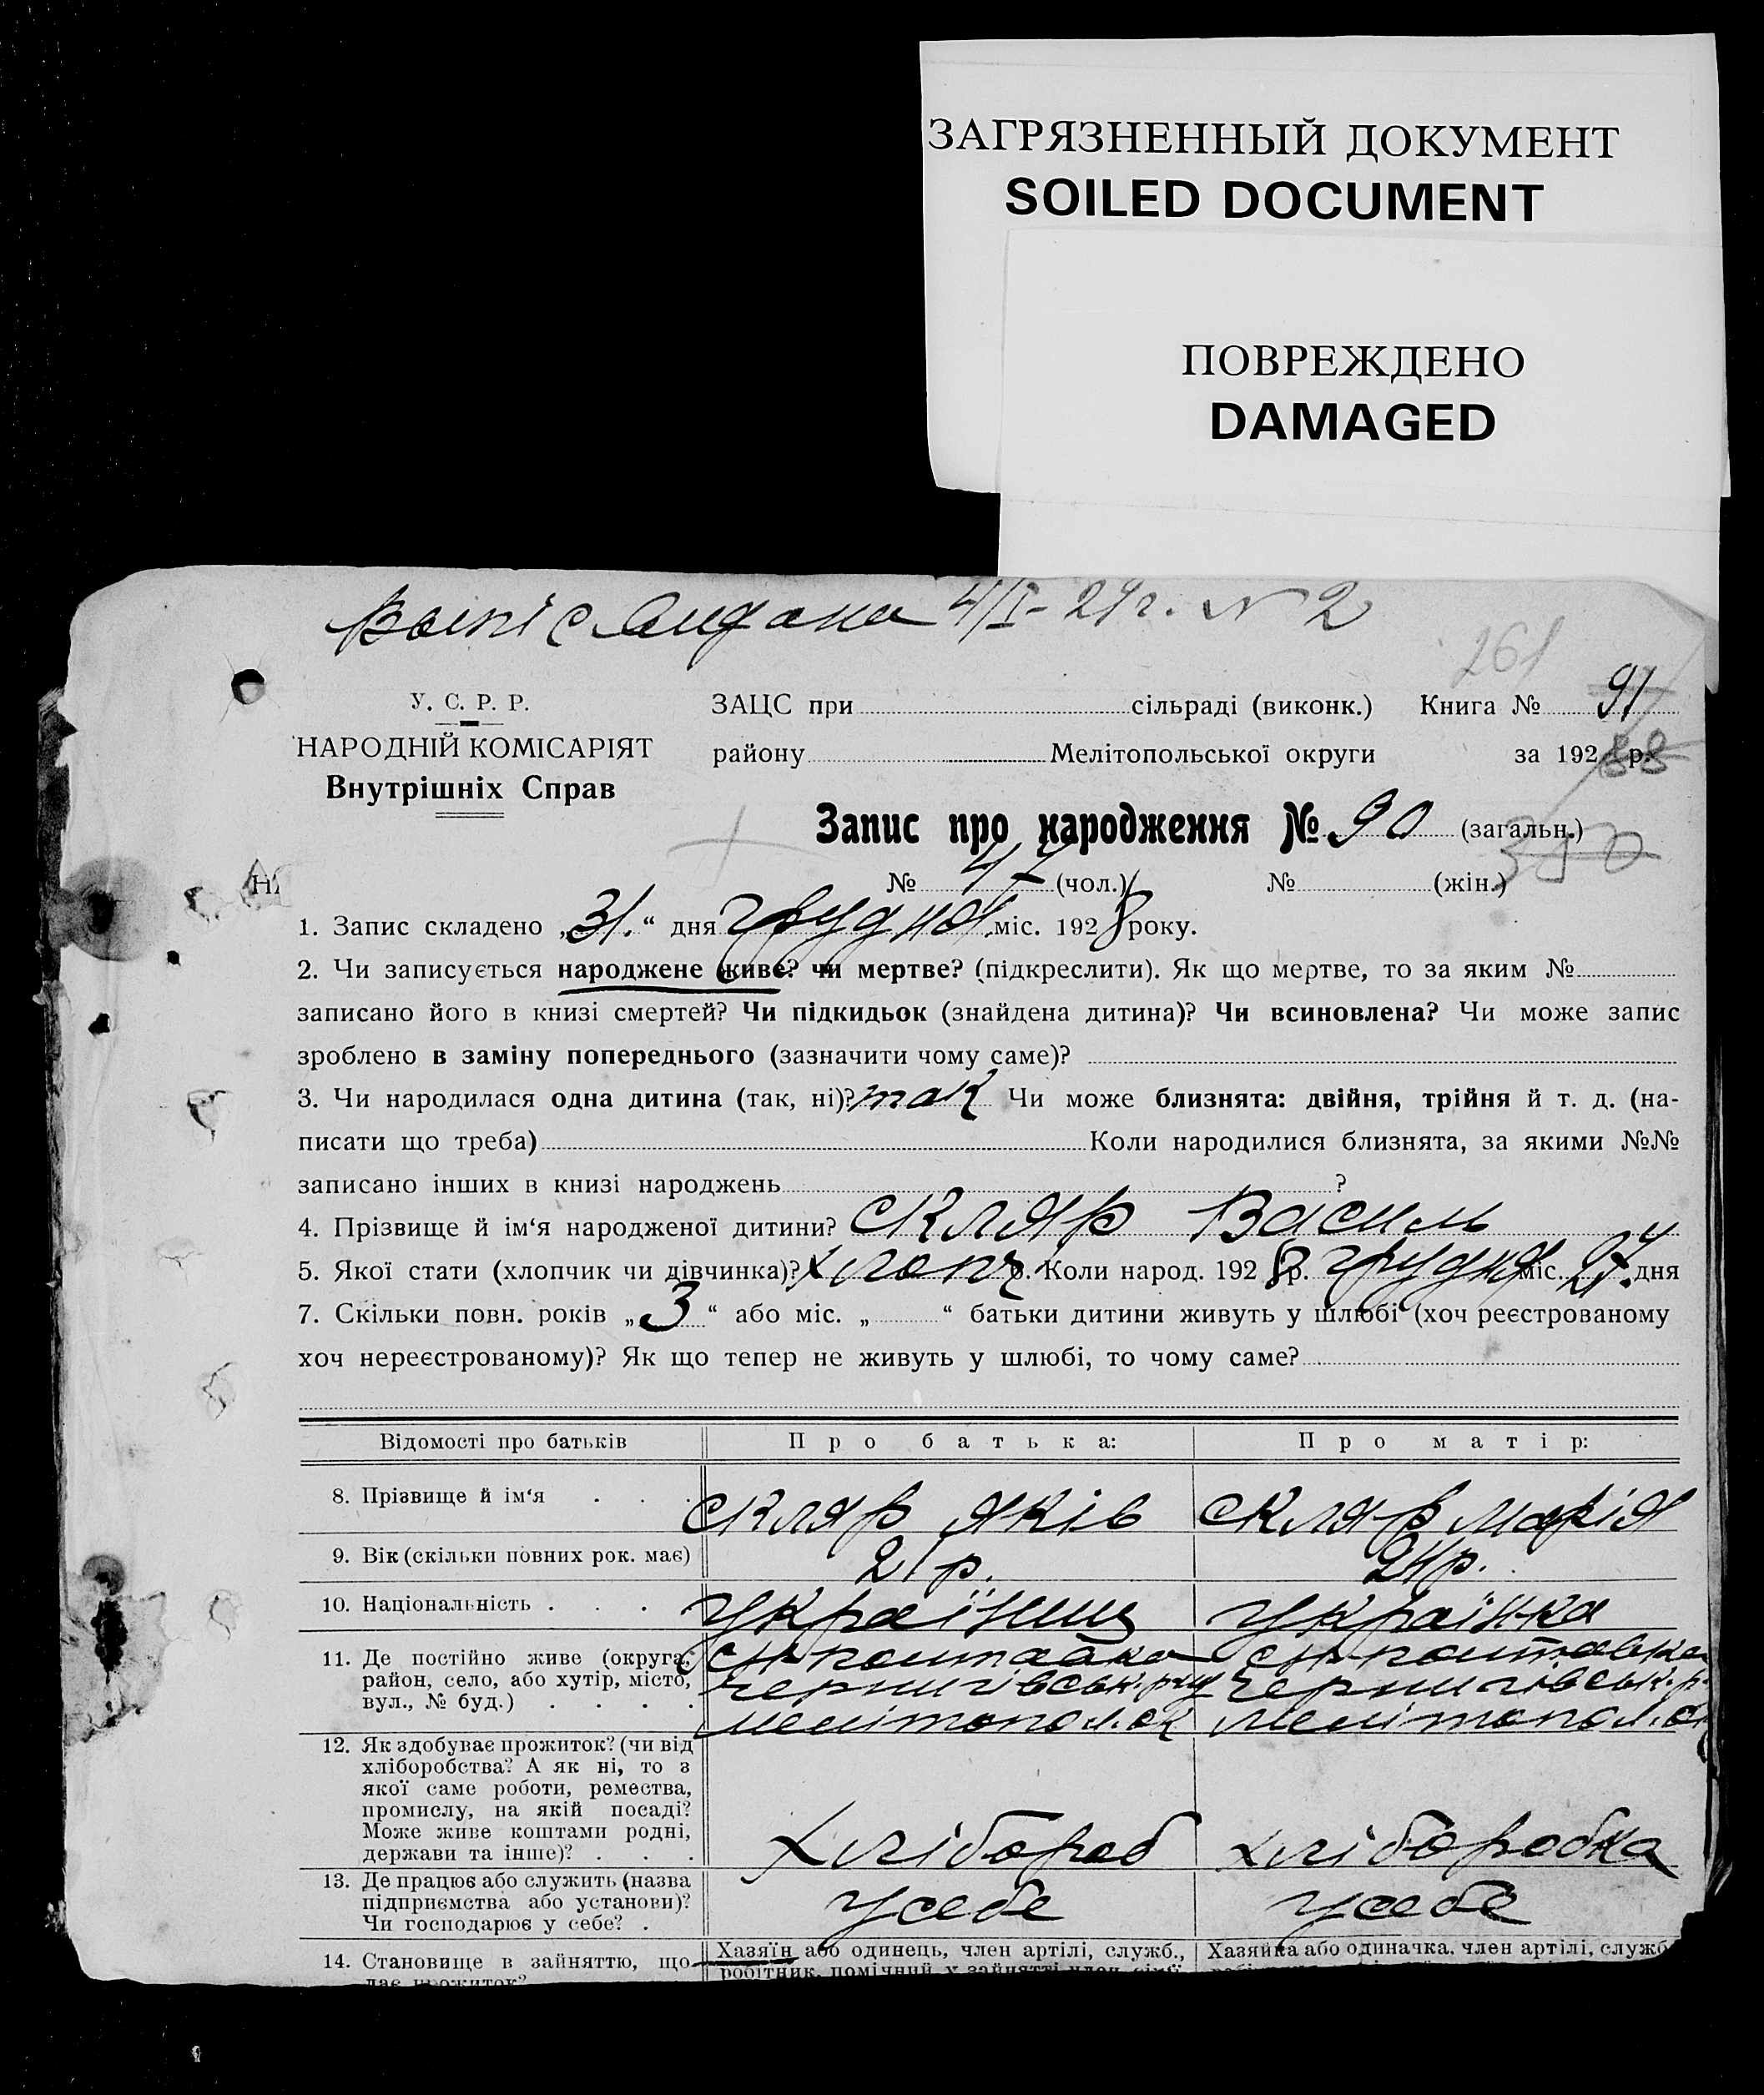 ЗАГРЯЗНЕННЫЙ ДОКУМЕНТ
SOILED DOCUMENT
ПОВРЕЖДЕНО
DAMAGED
4/I-29г. №2
261
У. С. Р. Р.
НАРОДНІЙ КОМІСАРІЯТ
Внутрішніх Справ
ЗАЦС при сільраді (виконк.) Книга № 91
району Мелітопольської округи за 192 р. 88
Запис про народження № 90 (загальн.)
№ 47 (чол.) № (жін.)
1. Запис складено „31.“ дня грудня міс. 1928 року.
2. Чи записується народжене живе? чи мертве? (підкреслити). Як що мертве, то за яким №
записано його в книзі смертей? Чи підкидьок (знайдена дитина)? Чи всиновлена? Чи може запис
зроблено в заміну попереднього (зазначити чому саме)?
3. Чи народилася одна дитина (так, ні)? так Чи може близнята: двійня, трійня й т. д. (на-
писати що треба) Коли народилися близнята, за якими №№
записано інших в книзі народжень ?
4. Прізвище й ім‘я народженої дитини? Скляр Василь
5. Якої стати (хлопчик чи дівчинка)? хлопч 6. Коли народ. 1928 р. грудня міс. 27. дня
7. Скільки повн. років „3“ або міс. „ “ батьки дитини живуть у шлюбі (хоч реєстрованому
хоч нереєстрованому)? Як що тепер не живуть у шлюбі, то чому саме?
Відомості про батьків Про батька: Про матір:
8. Прізвище й ім‘я . . . Скляр Яків Скляр Марія
9. Вік (скільки повних рок. має) 21 р. 21 р.
10. Національність . . . Українць Українка
11. Де постійно живе (округа,
район, село, або хутір, місто,
вул., № буд.) . . . .
Чернигівськ. р-ну Чернигівськ. р-
Мелітопол. ок Мелітопол. ок
12. Як здобуває прожиток? (чи від
хліборобства? А як ні, то з
якої саме роботи, ремества,
промислу, на якій посаді?
Може живе коштами родні,
держави та інше)? . . . Хлібороб хліборобка
13. Де працює або служить (назва
підприємства або установи)?
Чи господарює у себе? . у себе у себе
14. Становище в зайняттю, що Хазяїн або одинець, член артілі, служб., Хазяйка або одиначка, член артілі, служб
дає прожиток? робітник, помічний у зайнятті член сім'ї